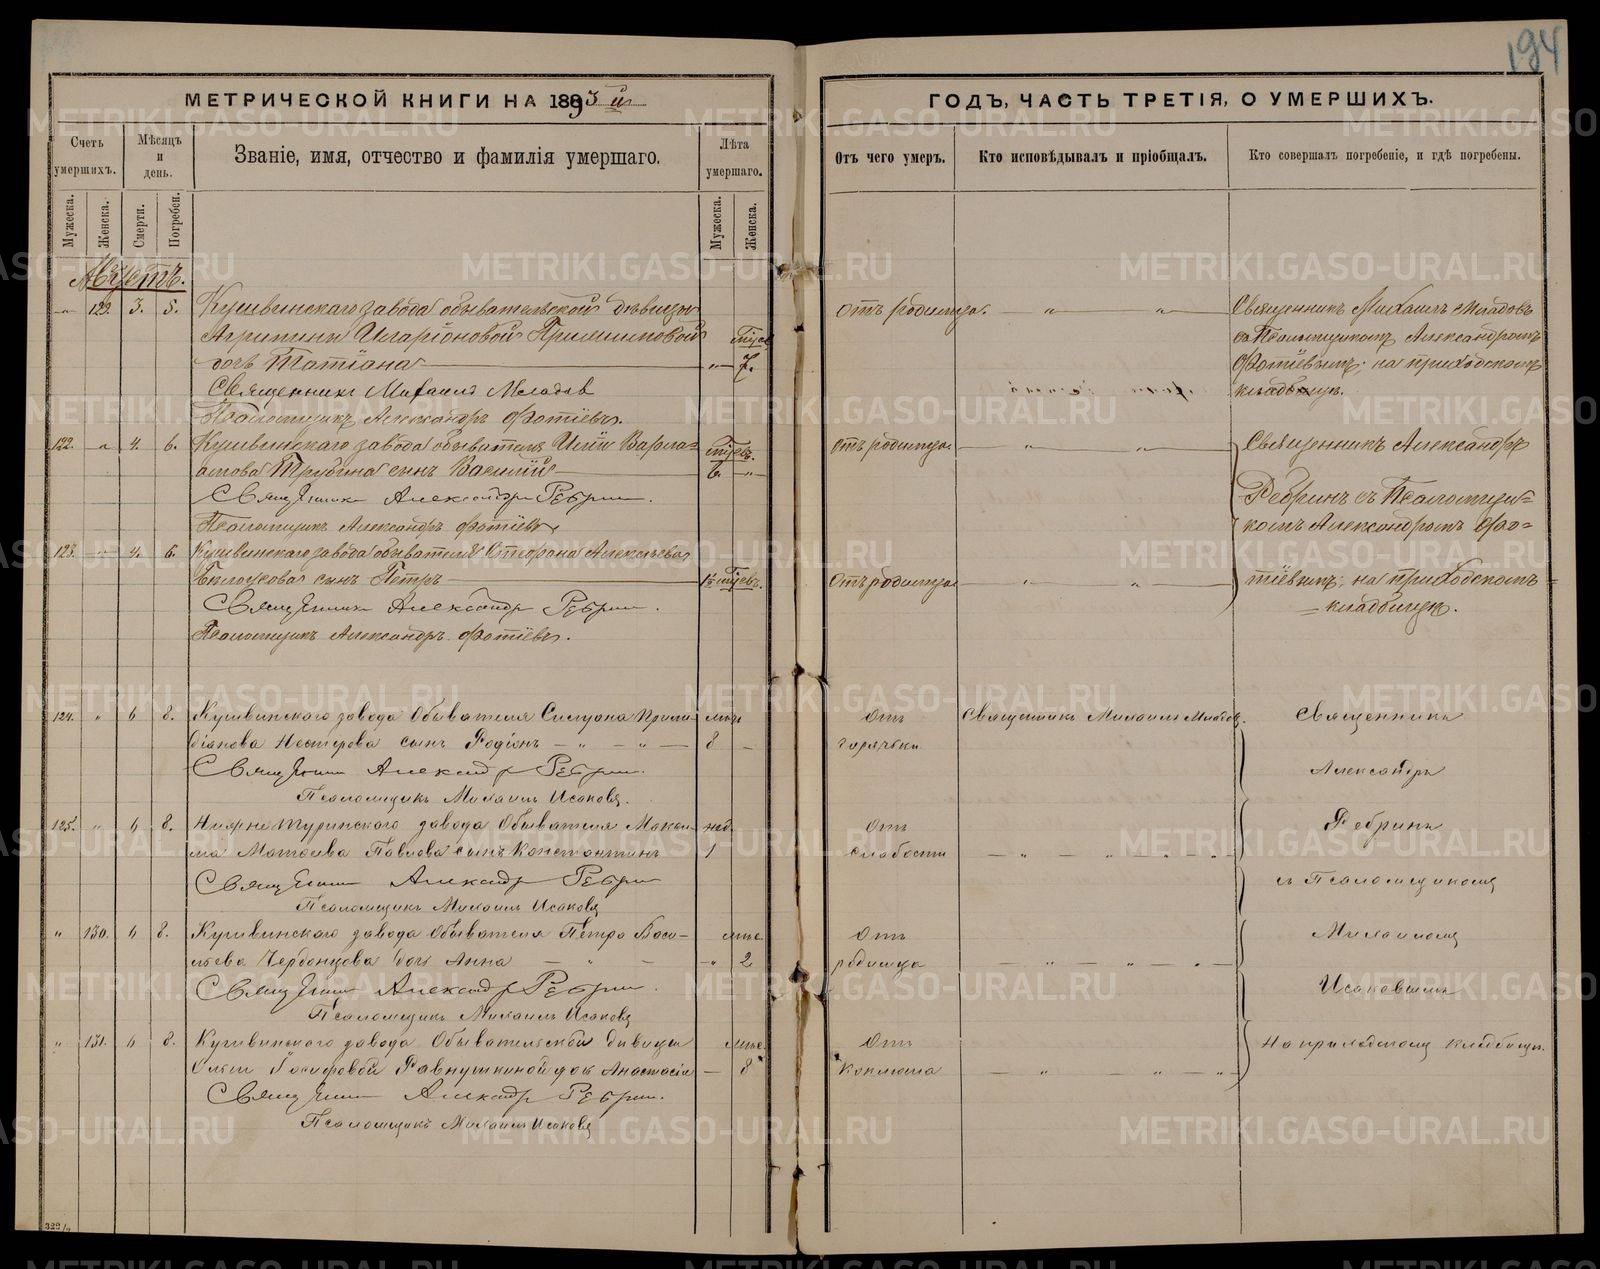 194
МЕТРИЧЕСКОЙ КНИГИ НА 1893й ГОДЪ, ЧАСТЬ ТРЕТІЯ, О УМЕРШИХЪ.
Счетъ умершихъ.
Мѣсяцъ и день.
Званіе, имя, отчество и фамилія умершаго.
Лѣта умершаго.
Отъ чего умеръ.
Кто исповѣдывалъ и пріобщалъ.
Кто совершалъ погребеніе, и гдѣ погребены.
Мужеска.
Женска.
Смерти.
Погребен.
Мужеска.
Женска.
Августъ.
129. 3. 5. Кушвинскаго завода обывательской дѣвицы
Агрипины Иларіоновой
дочь Татіана 7.
отъ родимца.
Священникъ Михаилъ Младовъ
съ Псаломщикомъ Александромъ
Фотіевымъ; на приходскомъ
кладбищѣ.
Священникъ Михаилъ Младов
Псаломщикъ Александръ Фотіевъ.
122. 4. 6. Кушвинскаго завода обывателя Иліи Варла-
амова Трубина сынъ Василій 6.
отъ родимца.
Священникъ Александръ
Ребринъ съ Псаломщи-
комъ Александромъ Фо-
тіевымъ; на приходскомъ
кладбищѣ.
Священникъ Александръ Ребрин.
Псаломщикъ Александръ Фотіевъ
123. 4. 6. Кушвинскаго завода обывателя Стефана Алексѣева
Бѣлоусова сынъ Петръ
Отъ родимца
Священникъ Александръ Ребрин.
Псаломщикъ Александръ Фотіевъ.
124. " 6 8. Кушвинскаго завода Обывателя
Нестерова сынъ Родіонъ 8
Отъ горячки
Священникъ Михаилъ Младов.
Священникъ
Александръ
Ребринъ
съ Псаломщикомъ
Михаиломъ
Исаковымъ
На приходскомъ кладбищѣ.
Священникъ Александръ Ребрин.
Псаломщикъ Михаилъ Исаковъ.
125. " 6 8. Нижнетуринскаго завода Обывателя Макси-
ма Павлова сынъ Константинъ нед. 1
Отъ слабости
Священникъ Александръ Ребрин
Псаломщикъ Михаилъ Исаковъ
" 130. 6 8. Кушвинскаго завода Обывателя Петра Васи-
льева дочь Анна 2
Отъ родимца
Священникъ Александръ Ребрин.
Псаломщикъ Михаилъ Исаковъ
" 131. 6 8. Кушвинскаго завода Обывательской дѣвицы
Ольги Іосифовой дочь Анастасія 8
Отъ коклюша
Священникъ Александръ Ребрин.
Псаломщикъ Михаилъ Исаковъ
METRIKI.GASO-URAL.RU